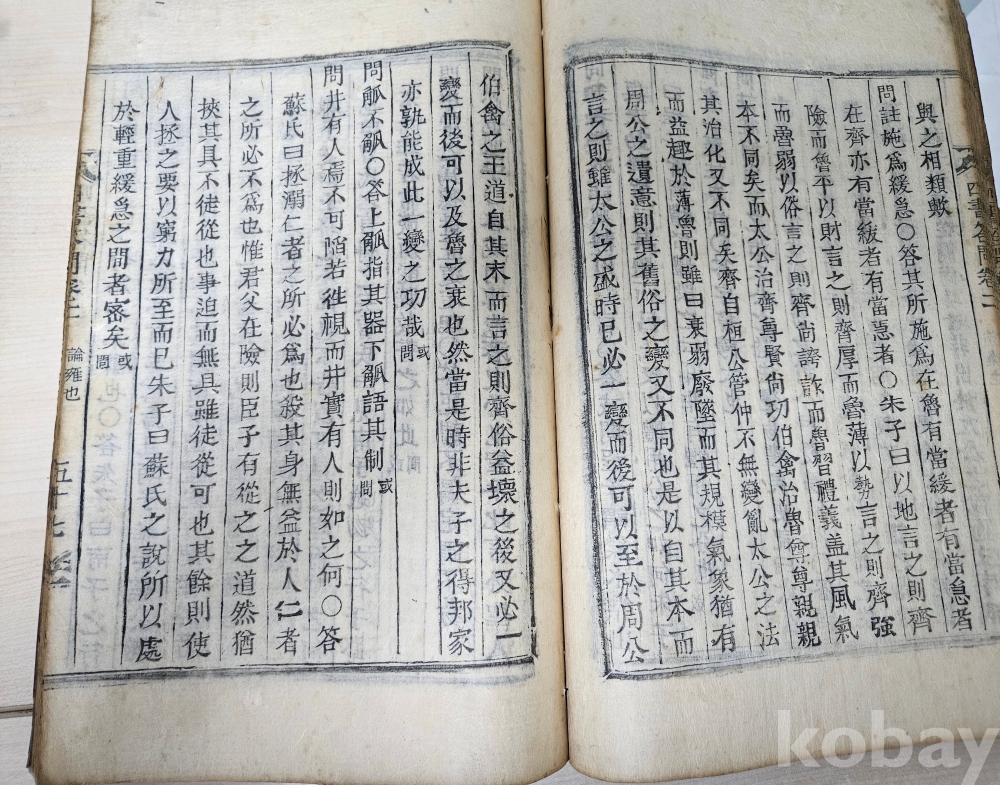 與之相類歟
問註施爲緩急○答其所施爲在魯有當緩者有當急者
在齊亦有當緩者有當急者○朱子曰以地言之則齊
險而魯平以財言之則齊厚而魯薄以勢言之則齊強
而魯弱以俗言之則齊尙誇詐而魯習禮義盖其風氣
本不同矣而太公治齊尊賢尙功伯禽治魯尊尊親親
其治化又不同矣齊自桓公管仲不無變亂太公之法
而益趣於薄魯則雖曰衰弱廢墜而其規模氣象猶有
周公之遺意則其舊俗之變又不同也是以自其本而
言之則雖太公之盛時已必一變而後可以至於周公
伯禽之王道自其末而言之則齊俗益壞之後又必一
變而後可以及齊之衰也然當是時非夫子之得邦家
亦孰能成此一變之功哉 或問
問觚不觚○答上觚指其器下觚語其制 或問
問井有人焉不可陷若徃視而井實有人則如之何○答
蘇氏曰拯溺仁者之所必爲也殺其身無益於人仁者
之所必不爲也惟君父在險則臣子有從之之道然猶
挾其具不徒從也事迫而無具雖徒從可也其餘則使
人拯之要以窮力所至而已朱子曰蘇氏之說所以處
於輕重緩急之間者密矣 或問
四書答問卷二
論雍也
五十七
kobay